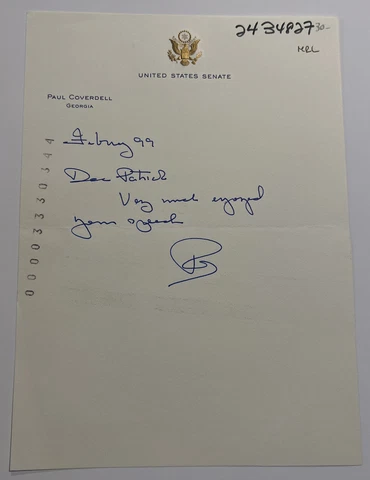 24 34827 30-
MRL
UNITED STATES SENATE
PAUL COVERDELL
GEORGIA
Februy 99
Dear Patrick
Very much enjoyed
your speech
0000333034